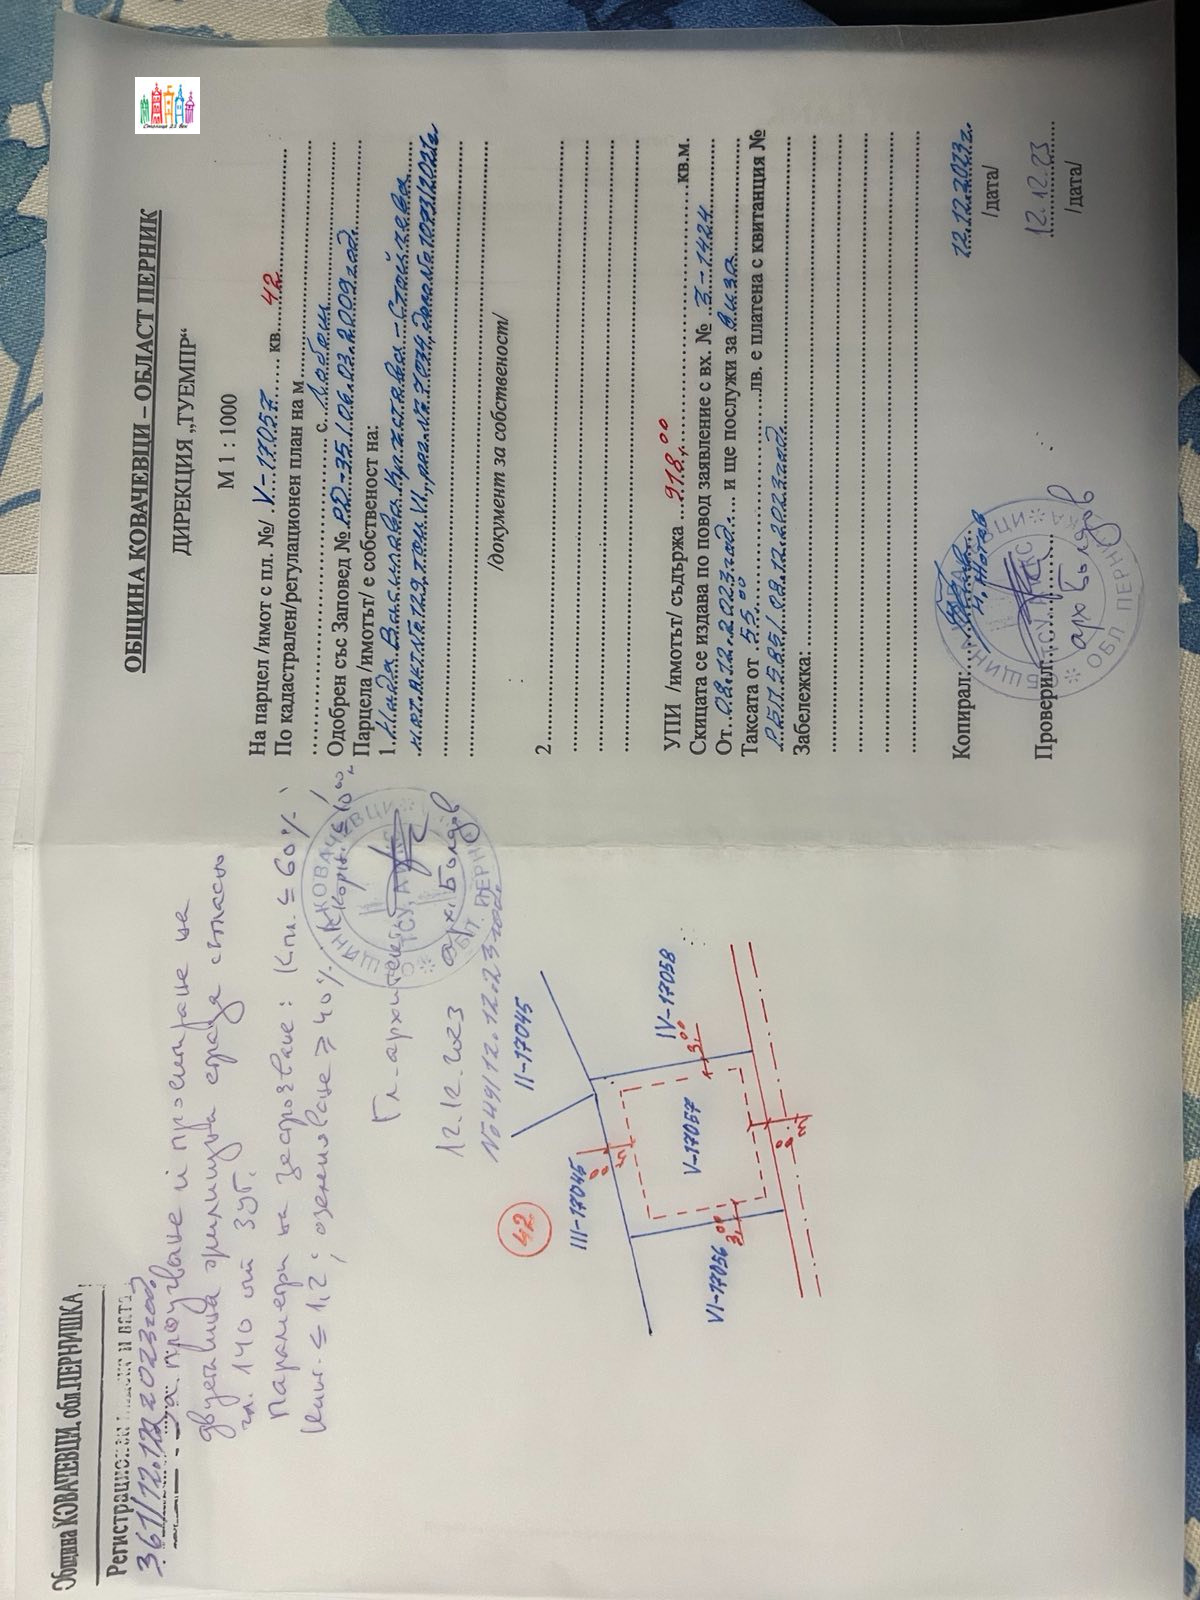 Община КОВАЧЕВЦИ, обл. ПЕРНИШКА
Регистрационен индекс и дата
361/12.12.2023год.
за проучване и проектиране на
двуетажна жилищна сграда съгласно
чл. 140 от ЗУТ.
Параметри на застрояване: Кпл. ≤ 60%;
Кинт. ≤ 1,2; озеленяване ≥ 40%. Ккорн. ≤ 10 м.
Гл. архитект:
12.12.2023 арх. Болдов
№49/12.12.23год.
42
II-17045
III-17045
IV-17058
V-17057
VI-17056
3,00
3,00
3,00
5,00
ОБЩИНА КОВАЧЕВЦИ – ОБЛАСТ ПЕРНИК
ДИРЕКЦИЯ „ТУЕМПР“
М 1 : 1000
На парцел /имот с пл. №/ V-17057 кв. 42
По кадастрален/регулационен план на м
с. Лобош
Одобрен със Заповед № РД-35/06.03.2009год.
Парцела /имотът/ е собственост на:
1. Надя Василева Кръстева-Стойчева
нот.акт№129, том VI, рег.№7034, дело№1073/2021г.
/документ за собственост/
2.
УПИ /имотът/ съдържа 918,00 кв.м.
Скицата се издава по повод заявление с вх. № З-1424
От 08.12.2023год. и ще послужи за виза
Таксата от 55.00 лв. е платена с квитанция №
08.12.2023год.
Забележка:
Копирал:
12.12.2023г.
/дата/
Проверил:
арх Болдов
12.12.23
/дата/
Столица 21 век